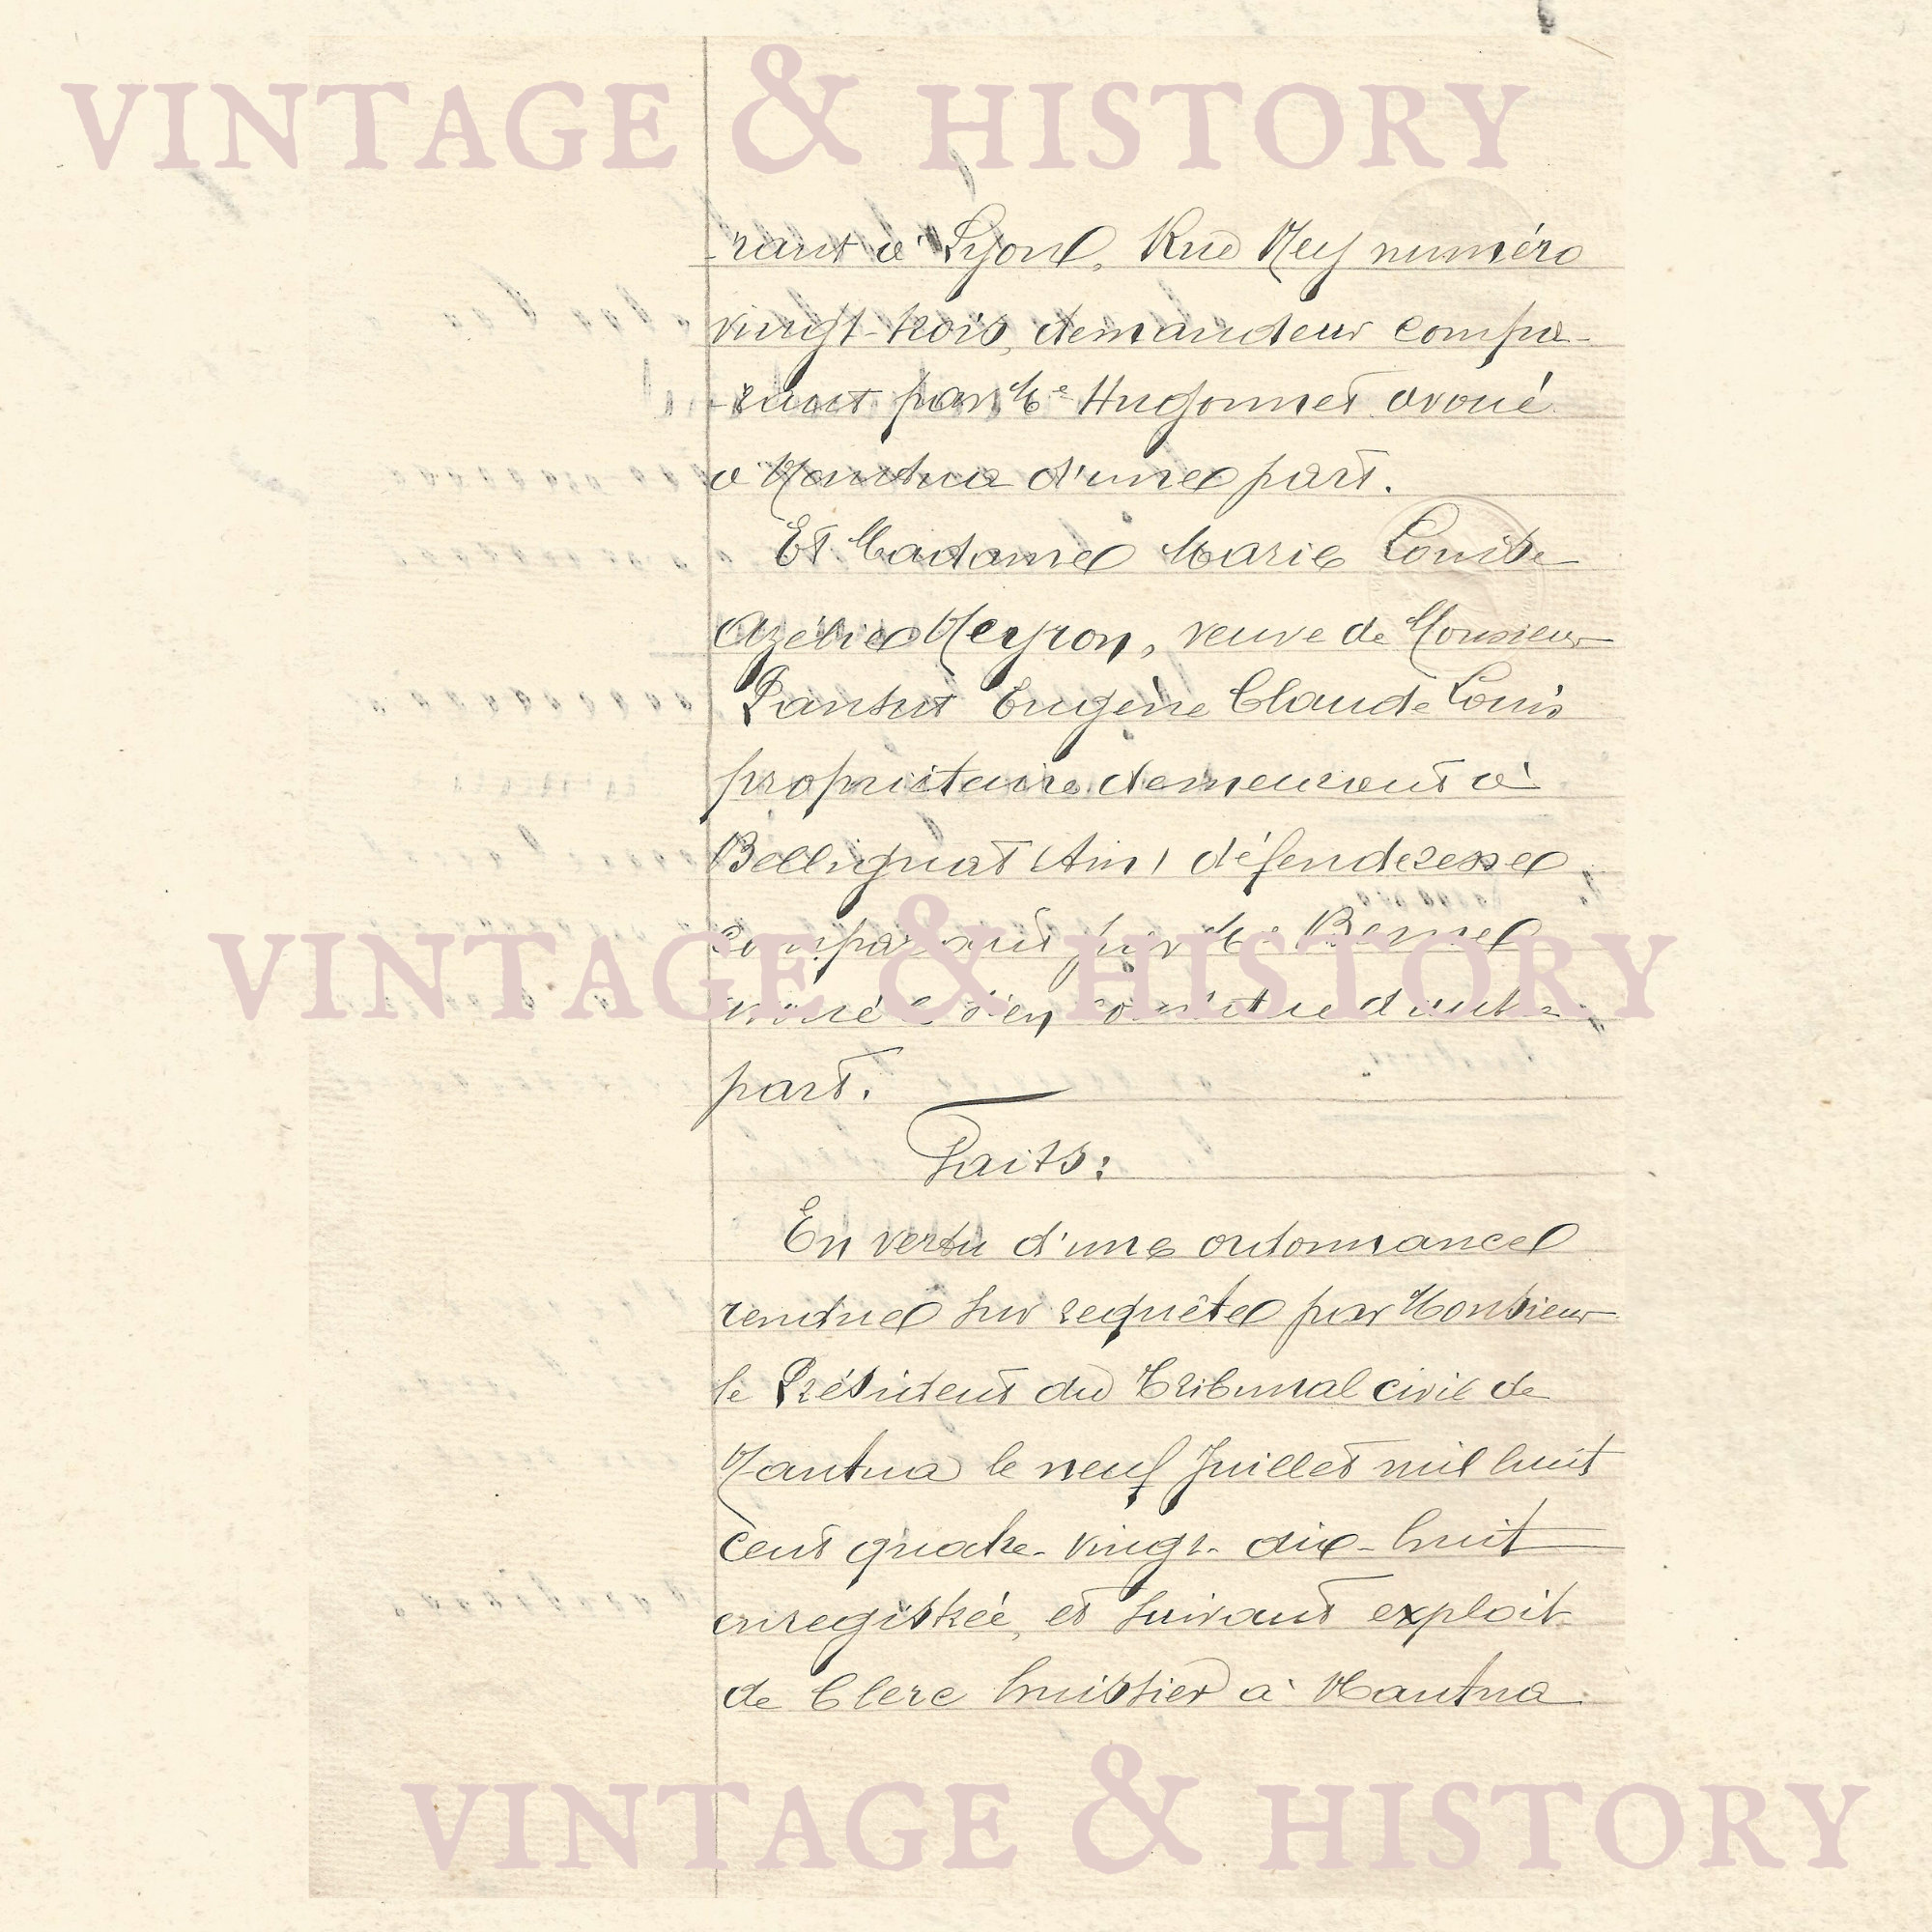 VINTAGE & HISTORY
-rant à Lyon, Rue Ney numéro
vingt-trois, demandeur compa-
-rant par Me Hugonnet avoué
à Nantua d'une part.
Et Madame Marie Louise
Azélie Neyron, veuve de Monsieur
Pansut Eugène Claude Louis
propriétaire demeurant à
Bellignat (Ain) défenderesse
comparant par Me
VINTAGE & HISTORY
avoué d'en constitué d'autre
part.
Faits:
En vertu d'une ordonnance
rendue sur requête par Monsieur
le Président du Tribunal civil de
Nantua le neuf Juillet mil huit
cent quatre-vingt-dix-huit
enregistrée, et suivant exploit
de Clerc huissier à Nantua
VINTAGE & HISTORY